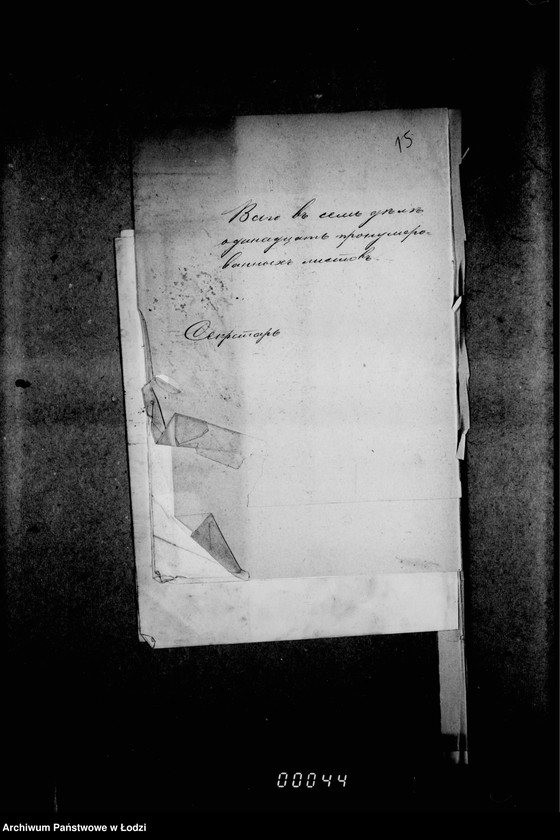 15
Всего въ семъ дѣлѣ
одинадцать пронумеро-
ванныхъ листовъ.
Секретарь
00044
Archiwum Państwowe w Łodzi